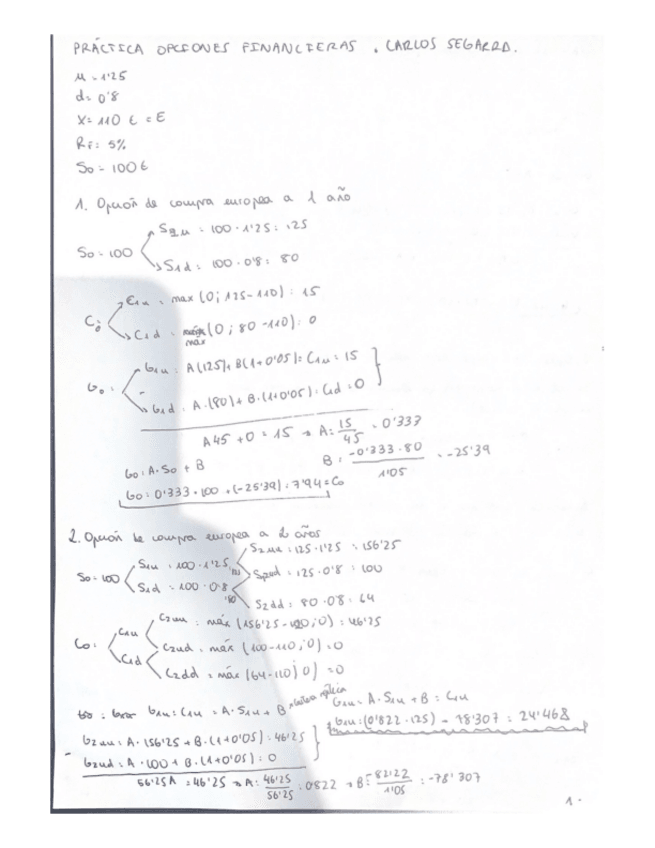 PRÁCTICA OPCIONES FINANCIERAS. CARLOS SEGARRA.
u = 1'25
d = 0'8
X = 110 € = E
RF = 5%
So = 100 €
1. Opción de compra europea a 1 año
S1u = 100 · 1'25 = 125
So = 100
S1d = 100 · 0'8 = 80
C1u = max (0; 125-110) = 15
Co
C1d = max (0; 80-110) = 0
G1u = A(125) + B(1+0'05) = C1u = 15
Go =
G1d = A·(80) + B·(1+0'05) = C1d = 0
A45 + 0 = 15 → A = 15/45 = 0'333
B = -0'333·80/1'05 = -25'39
Go = A·So + B
Go = 0'333·100 + (-25'39) = 7'94 = Co
2. Opción de compra europea a 2 años
S2uu = 125·1'25 = 156'25
S1u = 100·1'25
So = 100
S2ud = 125·0'8 = 100
S1d = 100·0'8
80
S2dd = 80·0'8 = 64
C2uu = máx (156'25-110; 0) = 46'25
C1u
Co =
C2ud = máx (100-110; 0) = 0
C1d
C2dd = máx (64-110; 0) = 0
G1u = C1u = A·S1u + B
G1u = A·S1u + B = C1u
G1u = (0'822·125) - 78'307 = 24'468
G2uu = A·156'25 + B·(1+0'05) = 46'25
G2ud = A·100 + B·(1+0'05) = 0
56'25A = 46'25 → A = 46'25/56'25 = 0'822 → B = 82'22/1'05 = -78'307
1.